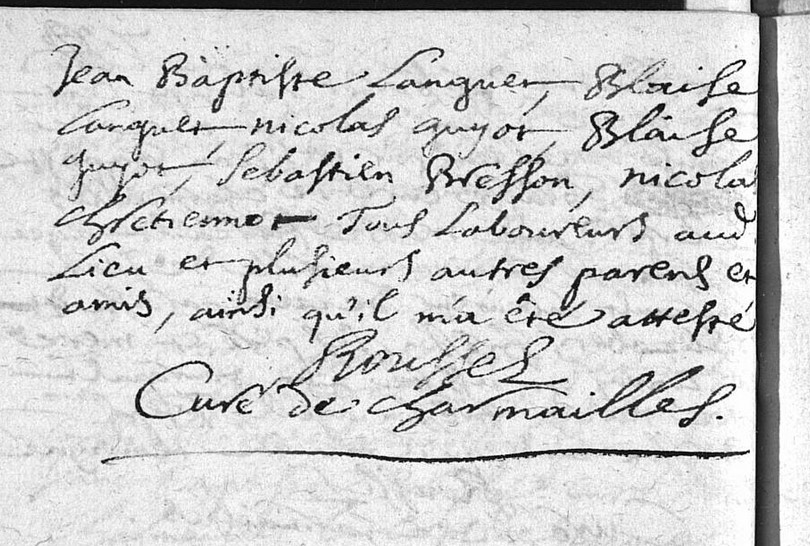 Jean Baptiste Languet, Blaise
Languet, nicolas guyot, Blaise
guyot, Sebastien Bresson, nicolas
Chretiennot Tous Laboureurs aud.
Lieu et plusieurs autres parens et
amis, ainsi qu'il m'a été attesté
Roussel
Curé de Charmailles.